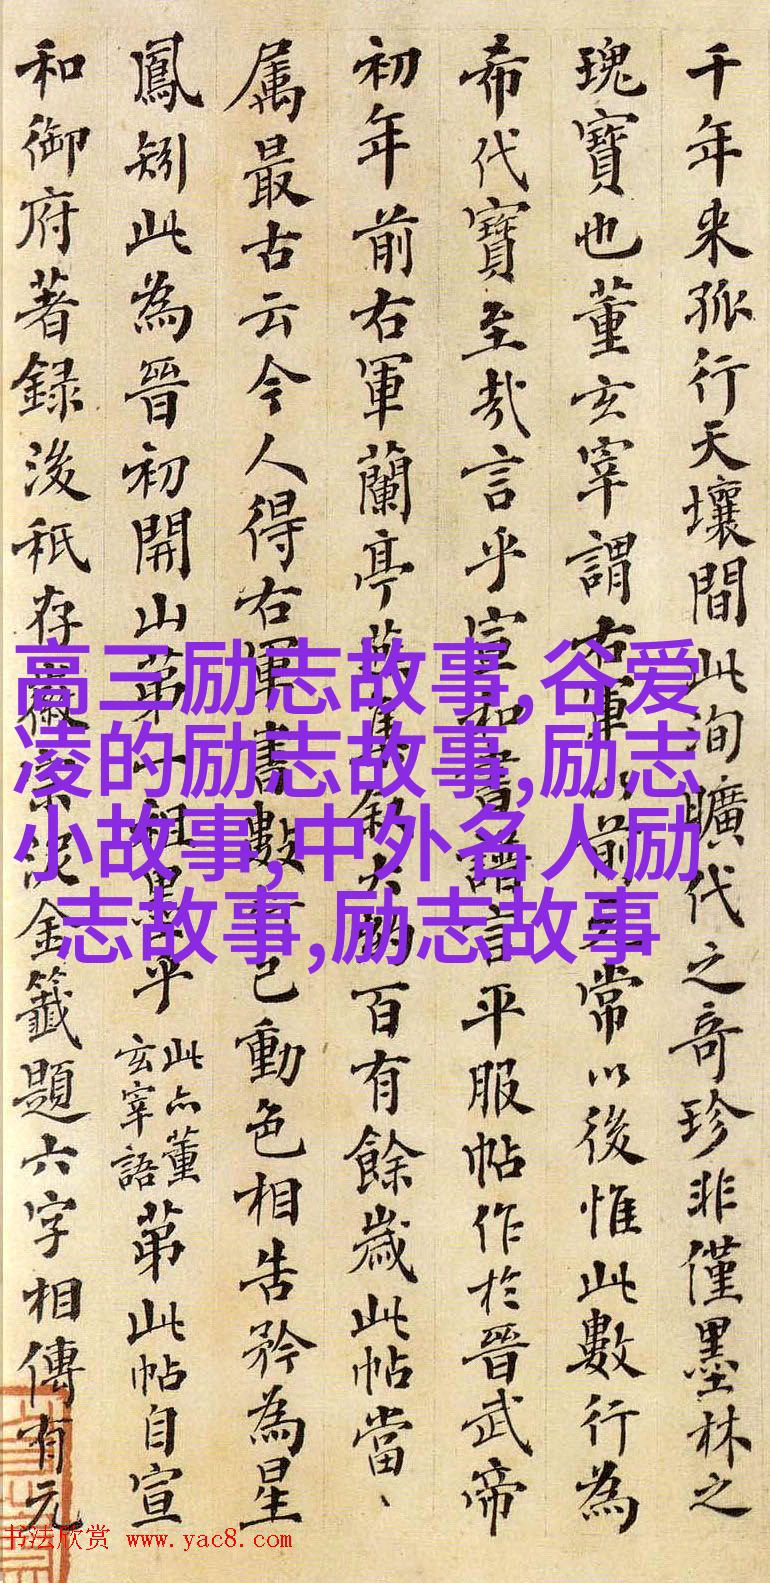 千年来孤行天壤間此洵曠代之奇珍非僅墨林之
瑰寶也董玄宰謂右軍以前元常以後惟此數行為
希代寶至哉言乎宣和書譜言平服帖作於晉武帝
初年前右軍蘭亭燕集叙大約百有餘歲此帖當
属最古云今人得右軍書數行已動色相告矜為星
鳳矧此為晉初開山第一祖墨乎
此亦董
玄宰語
第此帖自宣
和御府著録後秖存徽宗泥金籤題六字相傳有元
高三励志故事,谷爱
凌的励志故事,励志
小故事,中外名人励
志故事,励志故事
书法欣赏 www.yac8.com